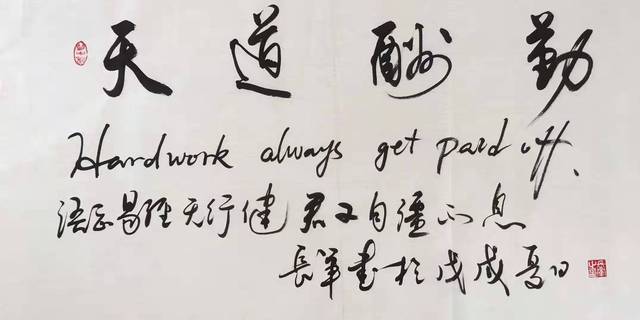 天道酬勤
Hardwork always get paid off.
语出易经天行健君子自疆不息
長军書於戊戌夏日